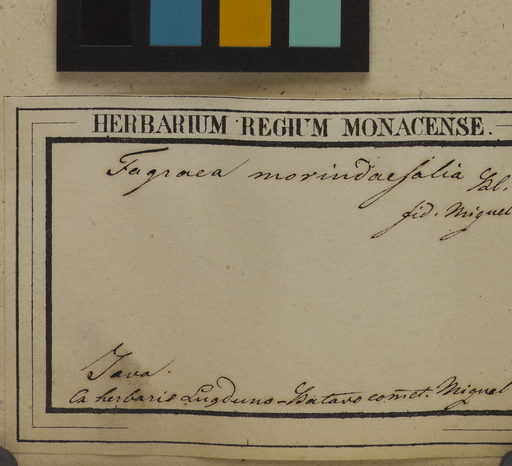 HERBARIUM REGIUM MONACENSE.
Fagraea morindaefolia Bl.
fid. Miquel
Java.
Ex herbario Lugduno-Batavo com̄. cl. Miquel